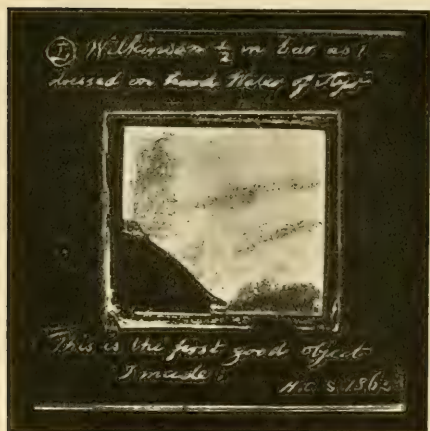 ① Wilkinson ½ in bar no 1
dressed on hand Water of Ayr
This is the first good object
I made.
H.C.S. 1862